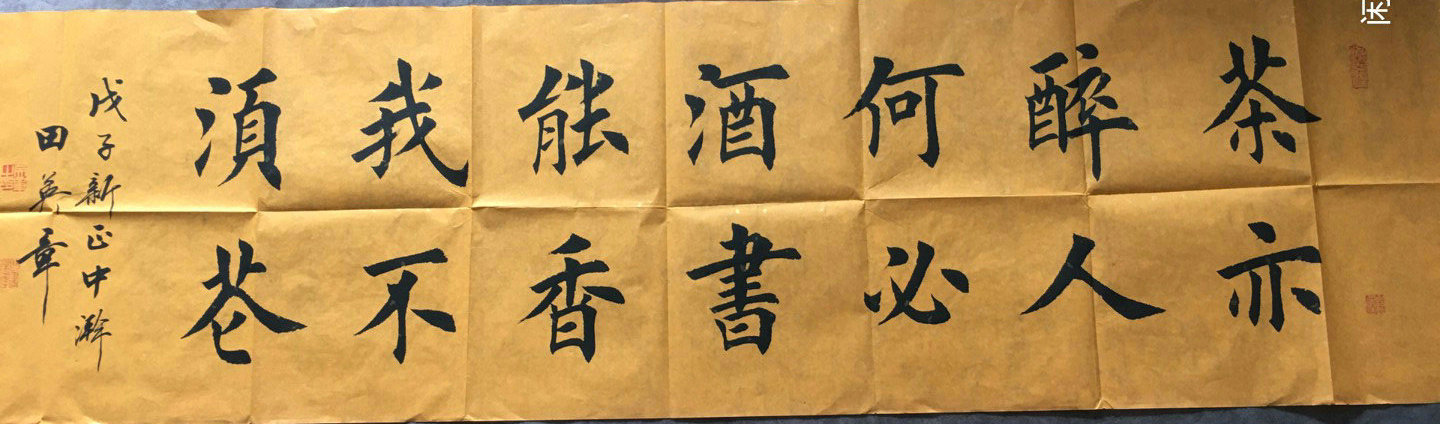 茶亦
醉人
何必
酒書
能香
我不
湏花
戊子新正中澣
田英章